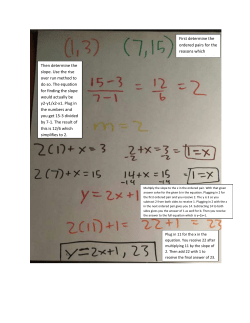 (1,3) (7,15)
First determine the
ordered pairs for the
reasons which
Then determine the
slope. Use the rise
over run method to
do so. The equation
for finding the slope
would actually be
y2-y1/x2-x1. Plug in
the numbers and
you get 15-3 divided
by 7-1. The result of
this is 12/6 which
simplifies to 2.
15-3 = 12 = 2
7-1 6
m=2
2(1)+x=3 2+x=3 1=x
-2 -2
2(7)+x=15 14+x=15 1=x
-14 -14
Multiply the slope to the x in the ordered pair. With that given
answer solve for the given b in the equation. Plugging in 2 for
the first ordered pair and you receive 2. The y is 3 so you
subtract 2 from both sides to receive 1. Plugging in 2 with the x
in the next ordered pair gives you 14. Subtracting 14 to both
sides gives you the answer of 1 as well for b. Then you receive
the answer to the full equation which is y=2x+1.
y=2x+1
2(11)+1= 22+1 = 23
y=2x+1, 23
Plug in 11 for the x in the
equation. You receive 22 after
multiplying 11 by the slope of
2. Then add 22 with 1 to
receive the final answer of 23.